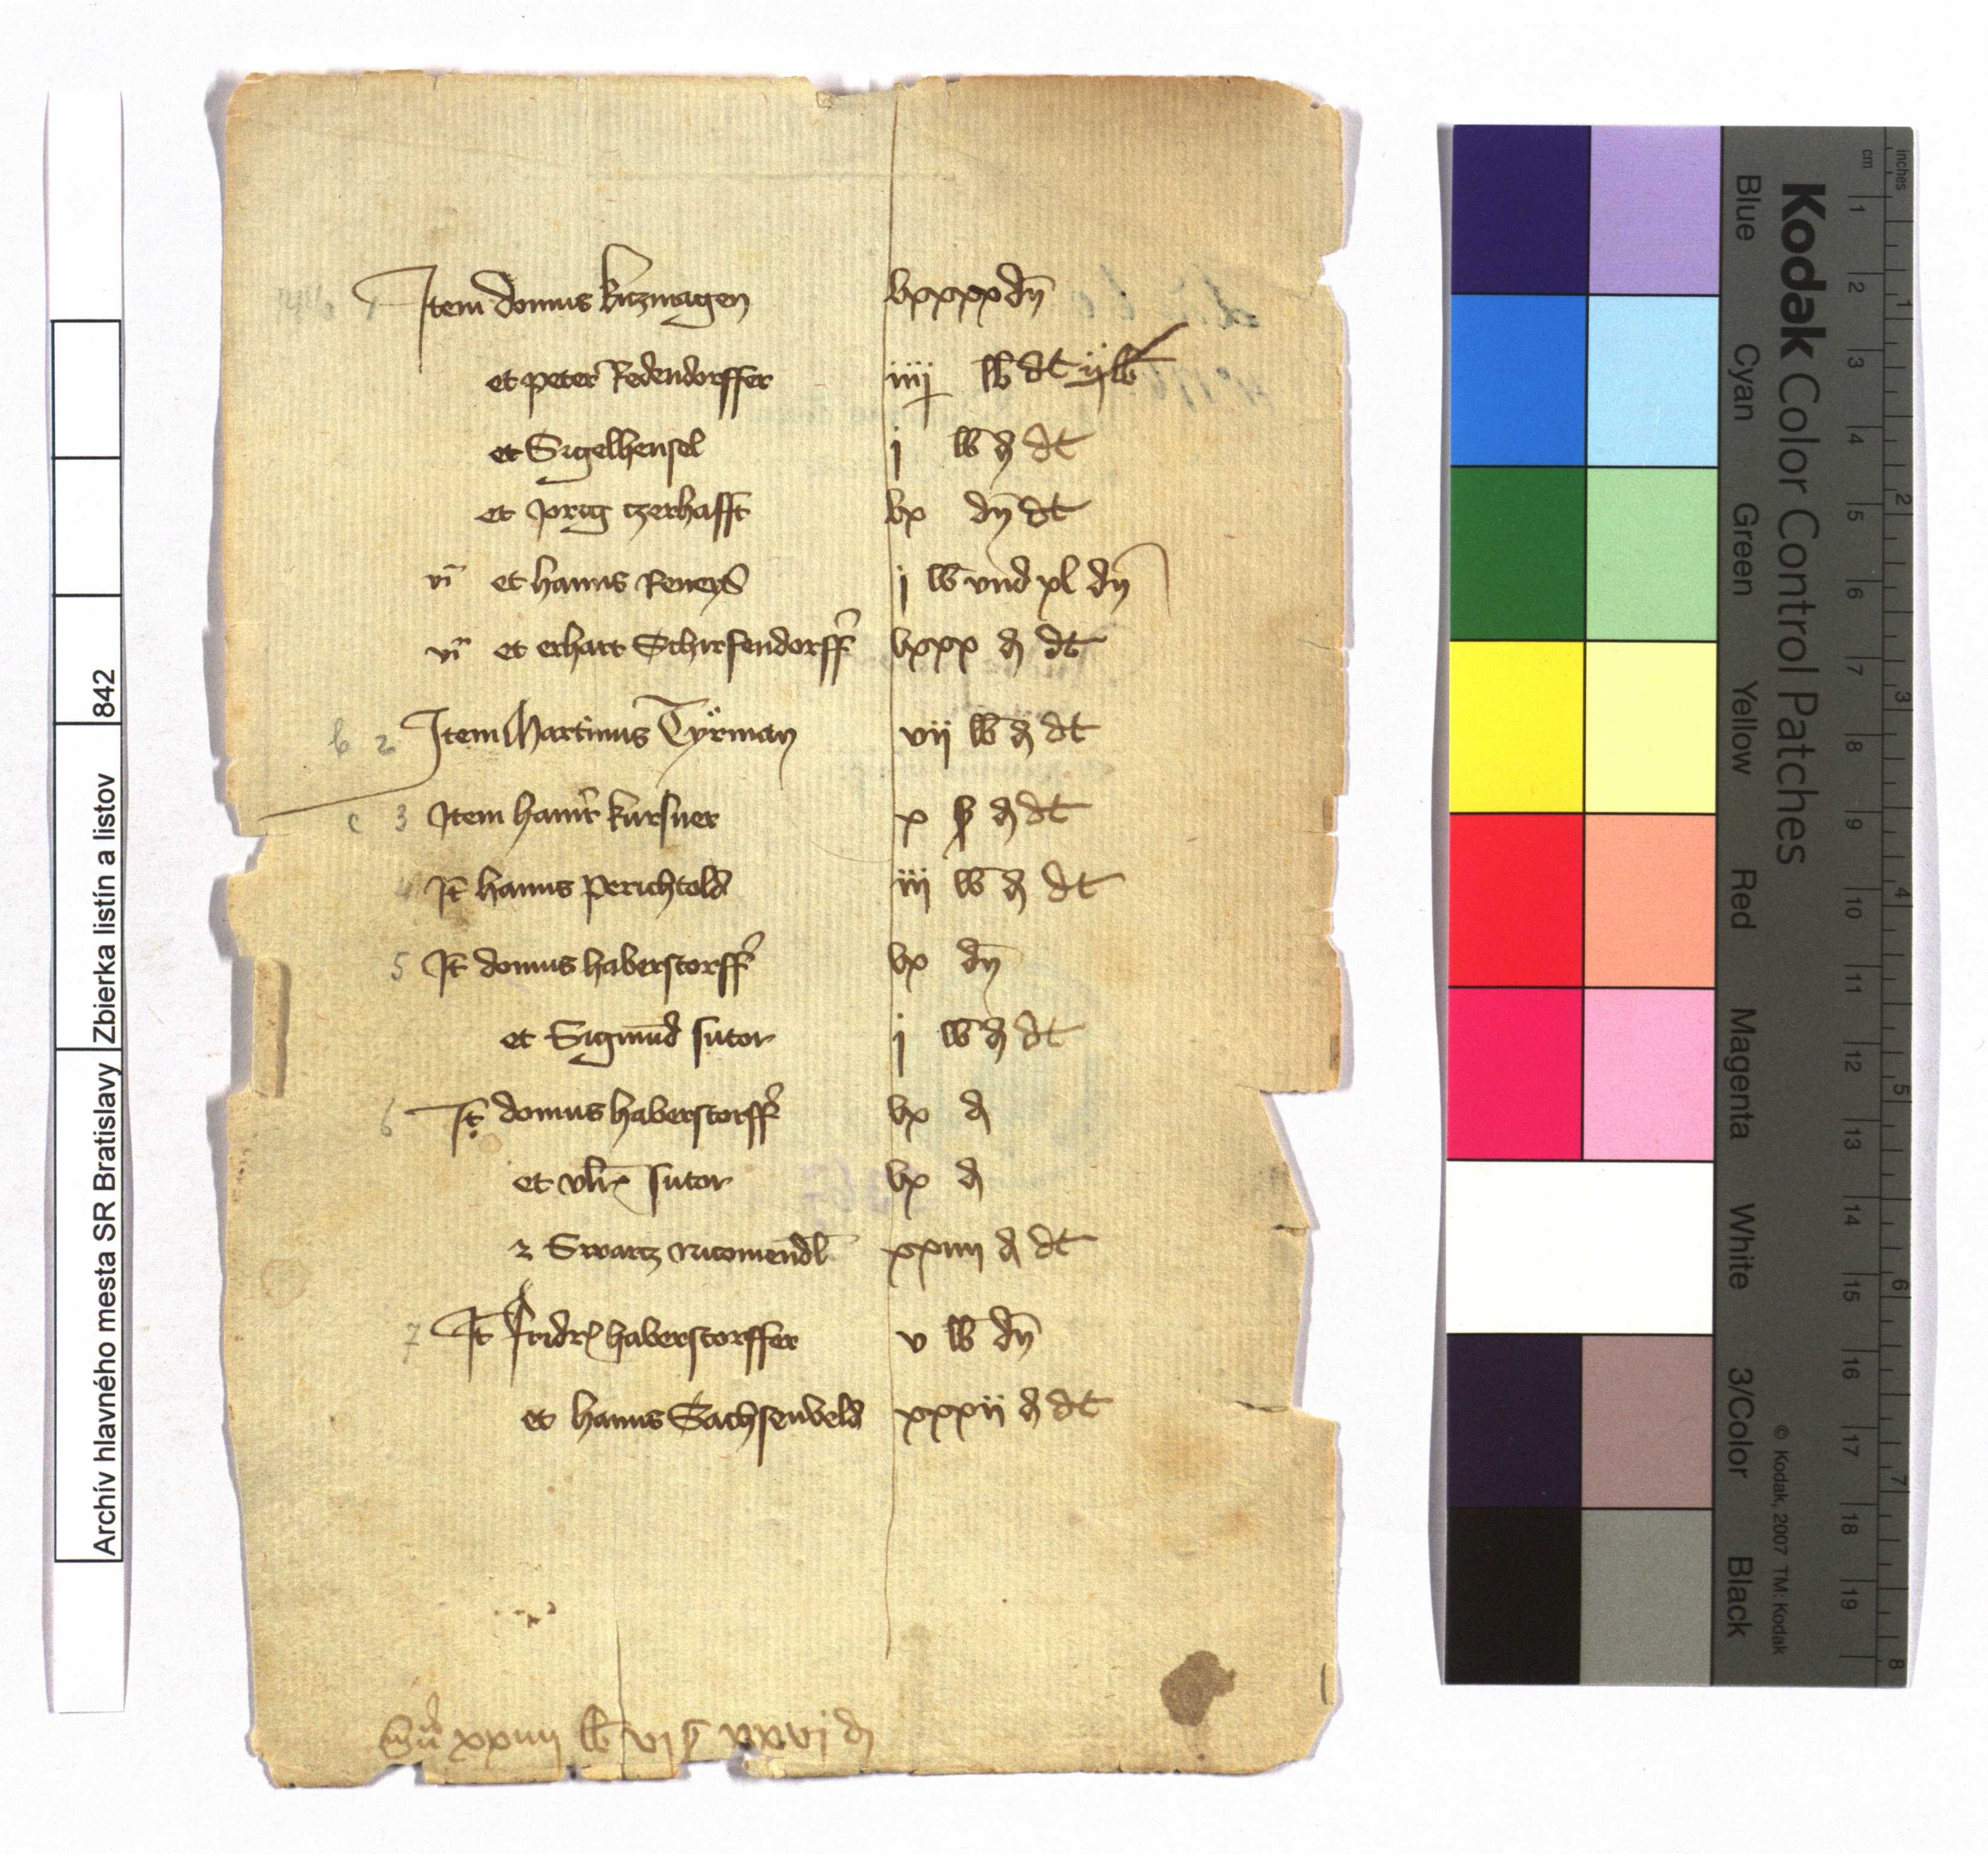 Item domus kiczmagen lxxxx dn̄
et peter Redendorffer iiij lb dt ij lb
et Sigelhensel j lb d dt
et Jorig czerhafft lx dn̄ dt
vi et hanns Reneys j lb vnd xl dn̄
vi et erhart Schirfendorff lxxx d dt
b 2 Item Martinus Tyrman vij lb d dt
c 3 Item kursner x d dt
4 It hanns perichtold iij lb d dt
5 It domus haberstorff lx dn̄
et Sigmund sutor j lb d dt
6 It domus haberstorff lx d
et vlr sutor lx d
z Swartz xxiiij d dt
7 It fridr haberstorffer v lb dn̄
et hanns Sachsenveld xxxij d dt
xxiiij lb vj ß xxvj d
Archív hlavného mesta SR Bratislavy Zbierka listín a listov 842
Kodak Color Control Patches
© Kodak, 2007 TM: Kodak
Blue Cyan Green Yellow Red Magenta White 3/Color Black
cm 1 2 3 4 5 6 7 8 9 10 11 12 13 14 15 16 17 18 19
inches 1 2 3 4 5 6 7 8